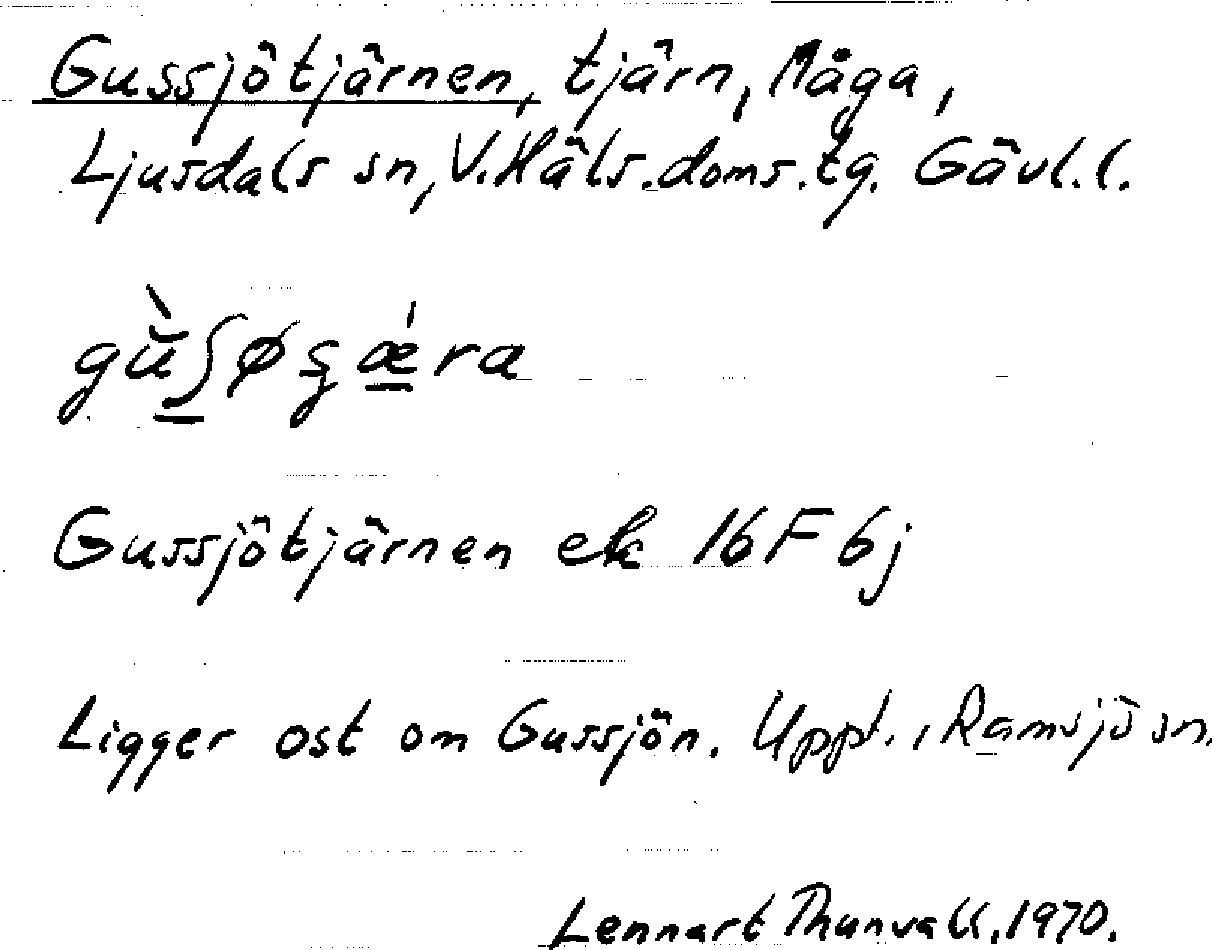 Gussjötjärnen, tjärn, Måga,
Ljusdals sn, V. Häls. doms. tg. Gävl. l.
Gussjötjärnen ek 16F 6j
Ligger ost om Gussjön. Uppt. i Ramsjö sn.
Lennart Thunvall. 1970.